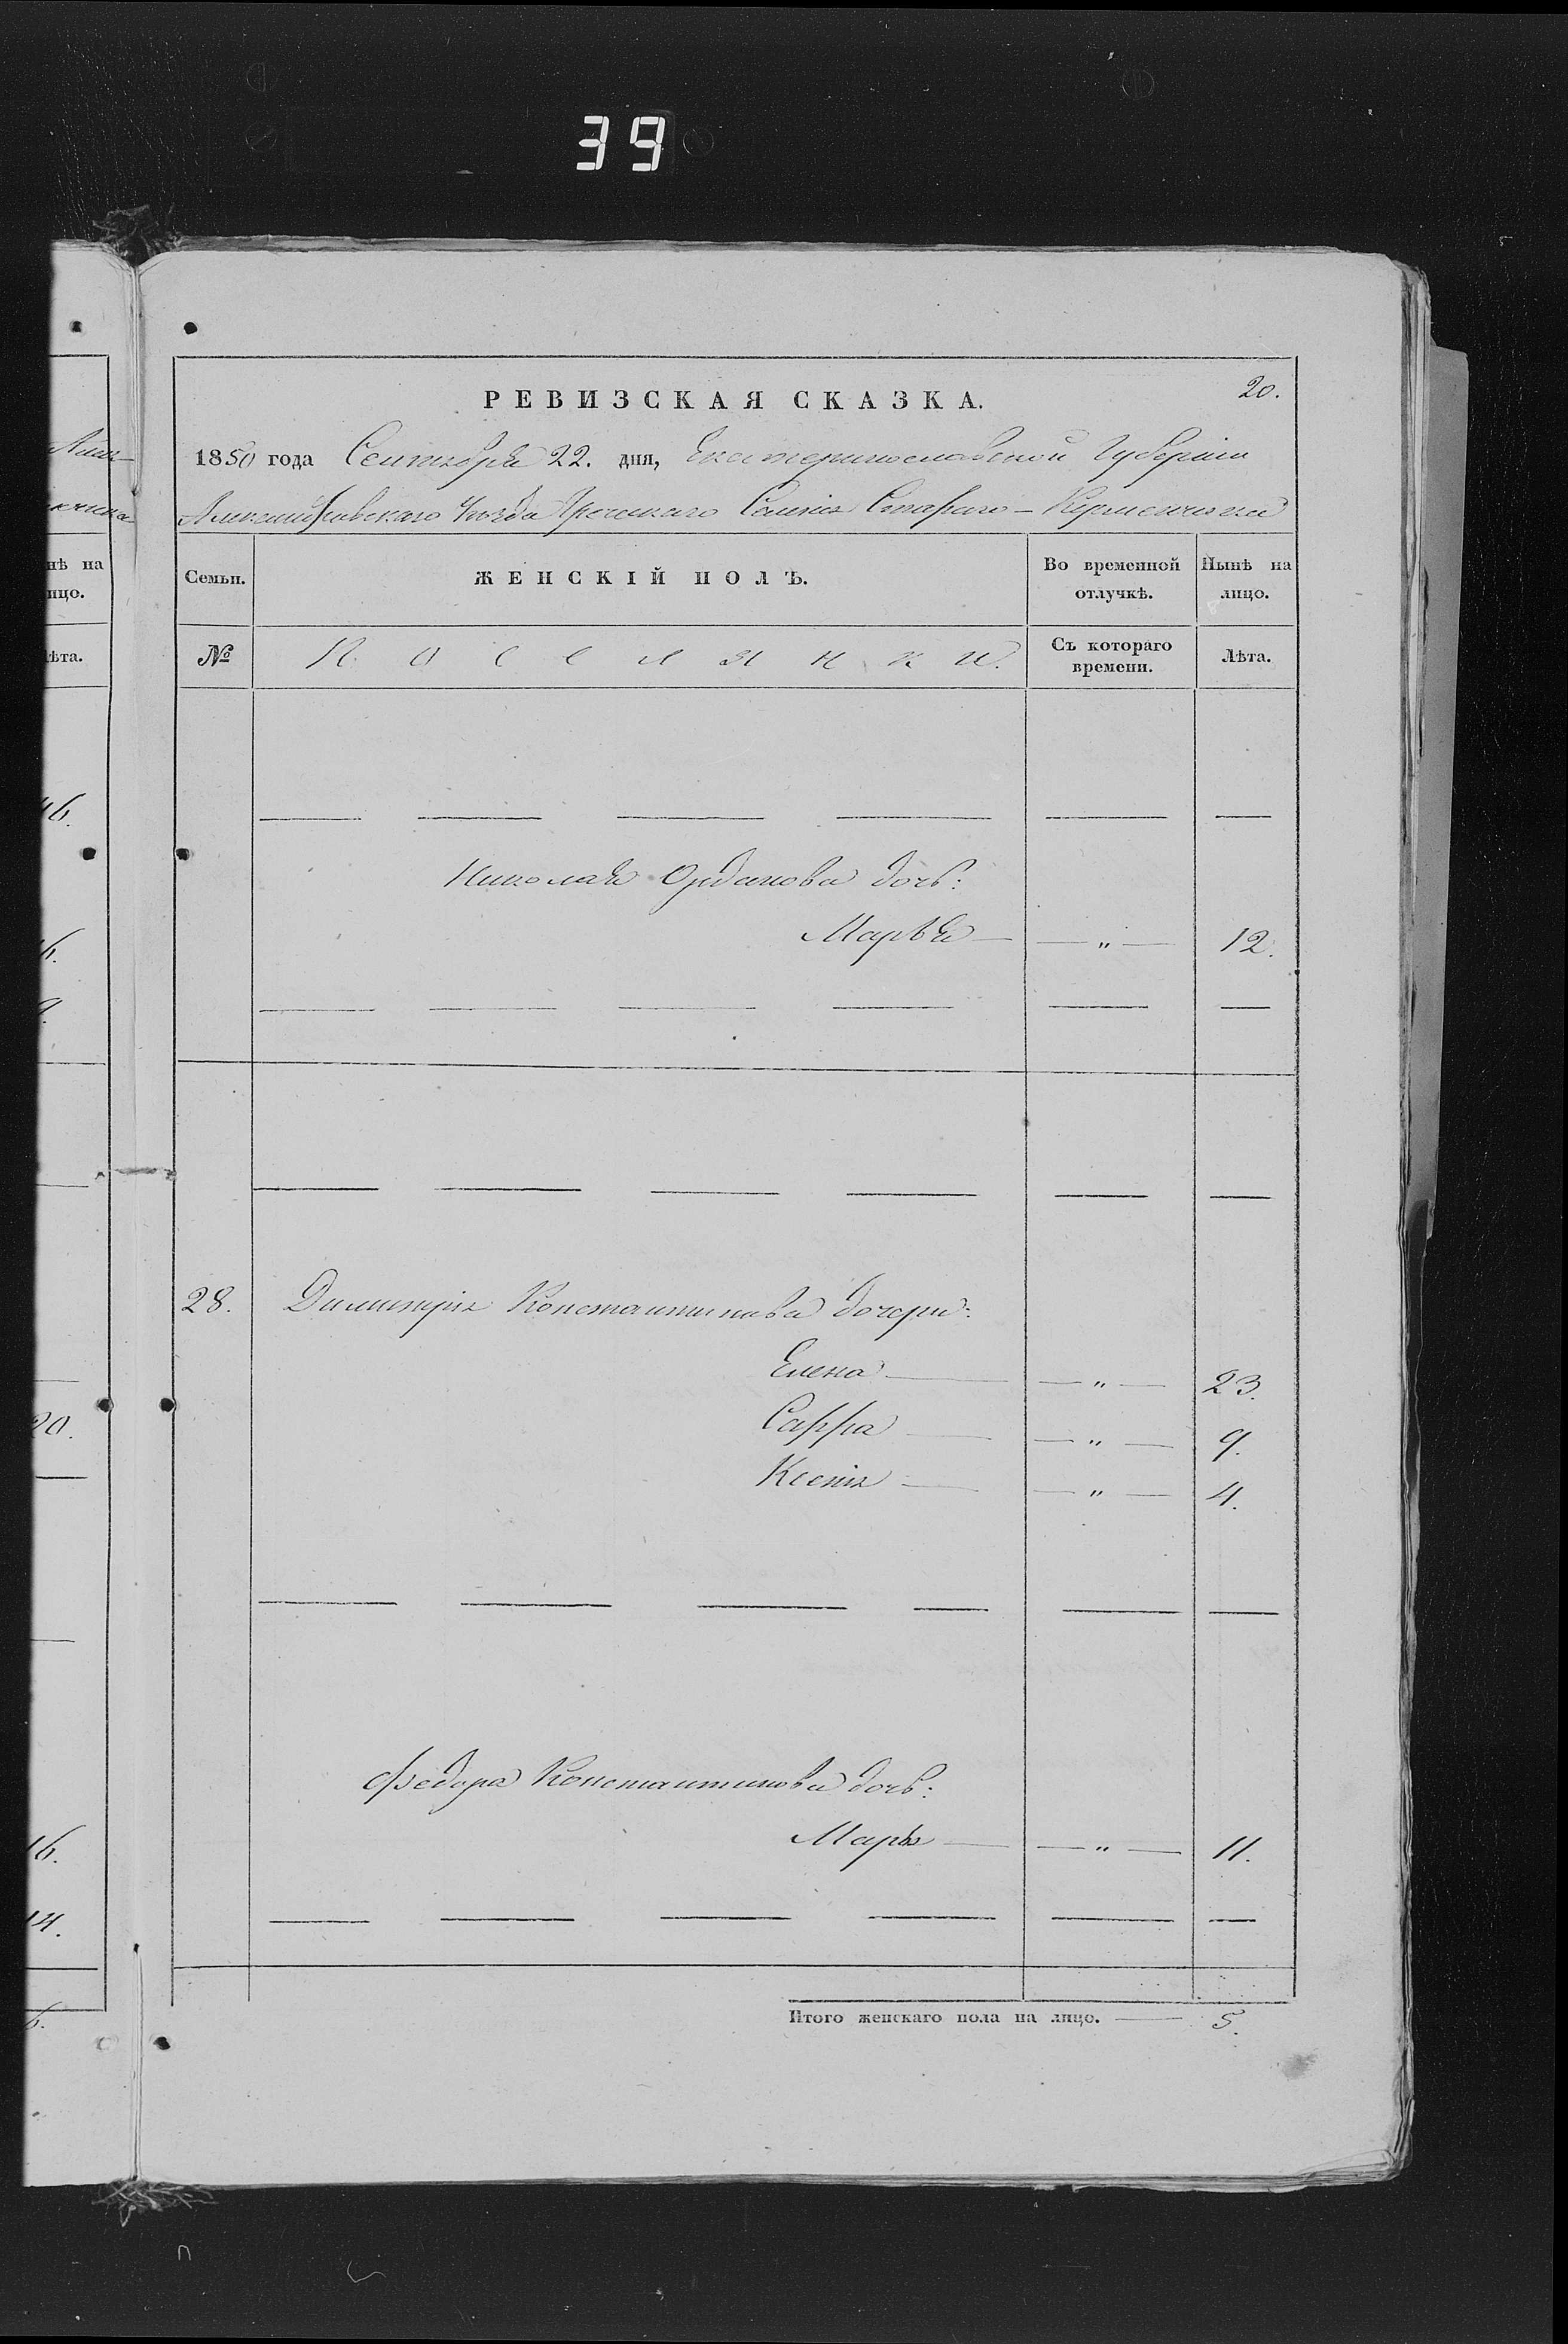 39
РЕВИЗСКАЯ СКАЗКА.
20.
1850 года Сентября 22. дня, Екатеринославской Губерніи
Александровскаго Уѣзда Греческаго Селенія Стараго-Керменчика
нѣ на
ицо.
Семьи.
ЖЕНСКІЙ ПОЛЪ.
Во временной отлучкѣ.
Нынѣ на лицо.
ѣта.
№
Поселянки.
Съ котораго времени.
Лѣта.
Николая Ордакова дочь:
Марья — — " — 12.
28. Димитрія Константинова дочери:
Елена — — " — 23.
20.
Сарра — — " — 9.
Ксенія — — " — 4.
Федора Константинова дочь:
Марія — — " — 11.
16.
14.
Итого женскаго пола на лицо. — 5.